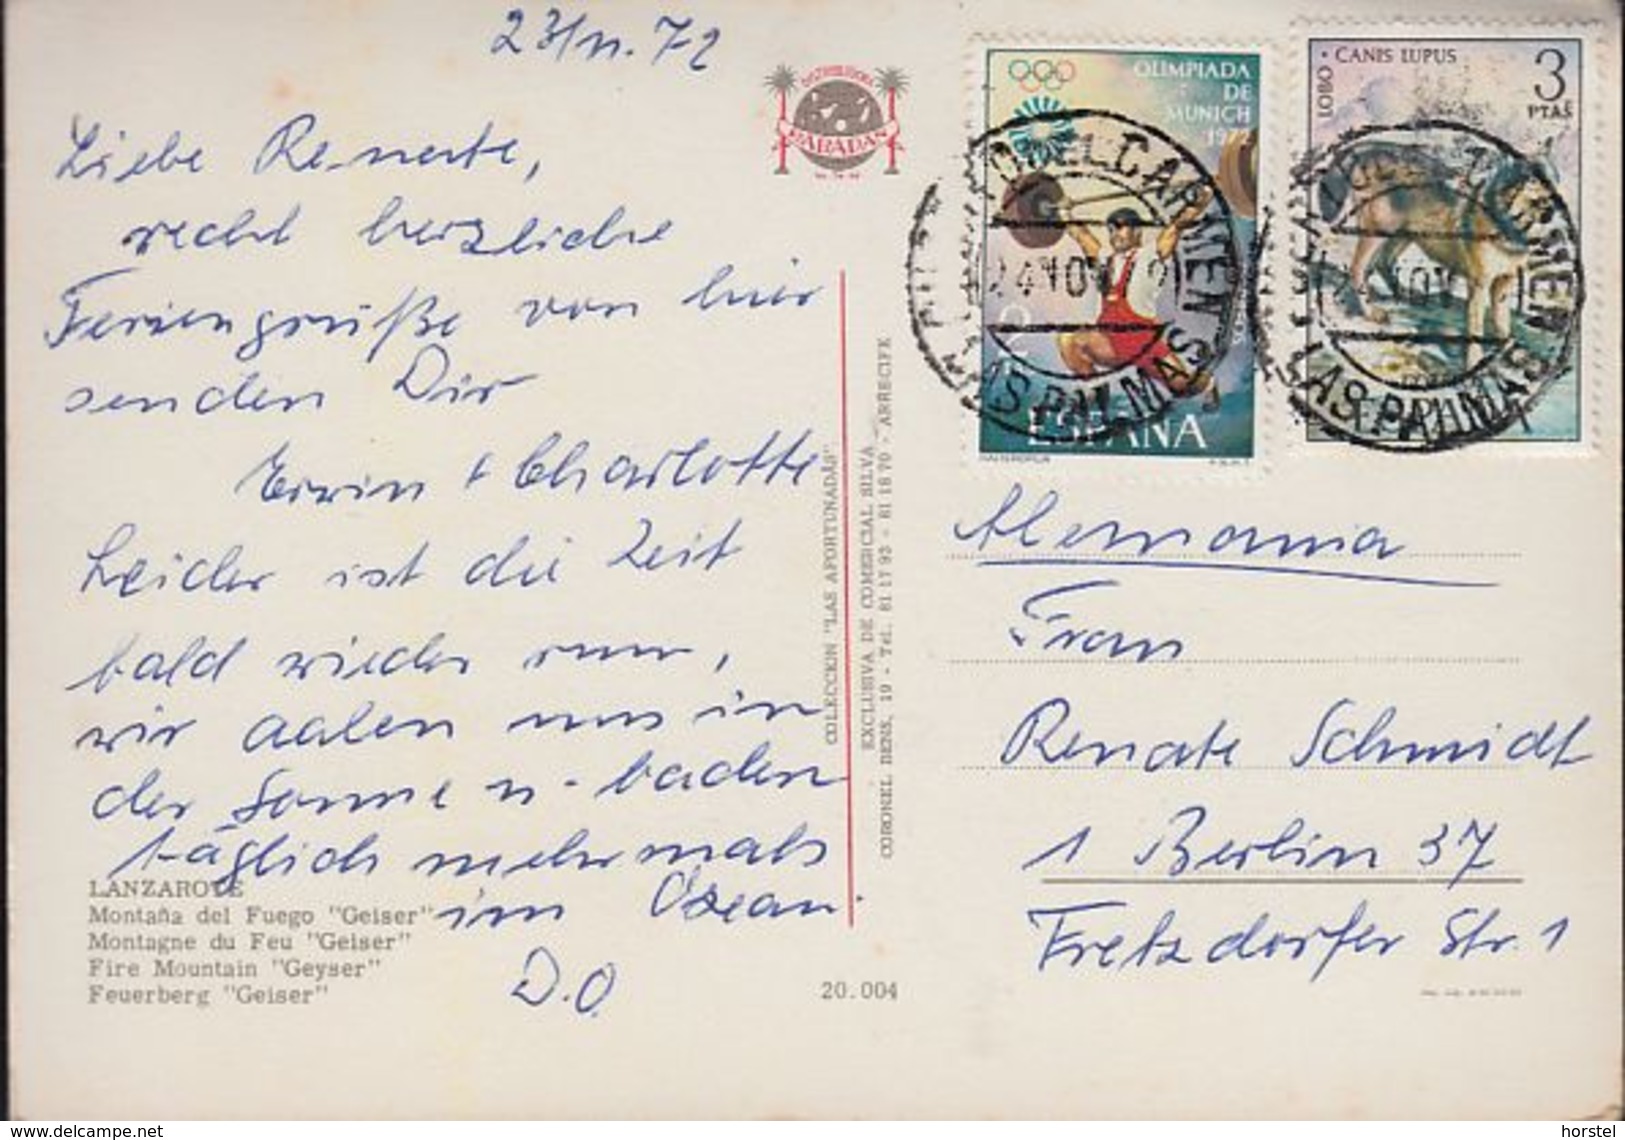 23/11.72
Liebe Renate,
recht herzliche
Feriengrüße von hier
senden Dir
Erwin + Charlotte
Leider ist die Zeit
bald wieder rum,
wir aalen uns in
der Sonne u. baden
täglich mehrmals
im Ozean.
D.O.
LANZAROTE
Montaña del Fuego "Geiser"
Montagne du Feu "Geiser"
Fire Mountain "Geyser"
Feuerberg "Geiser"
20.004
DISTRIBUIDORA
COLECCION "LAS AFORTUNADAS"
EXCLUSIVA DE COMERCIAL SILVA
CORONEL BENS, 19 - Tel. 81 17 93 - 81 18 70 - ARRECIFE
OLIMPIADA
DE
MUNICH
1972
2
ESPAÑA
LOBO · CANIS LUPUS
3
PTAS
ESPAÑA
CARMEN
24 NOV
LAS PALMAS
CARMEN
LAS PALMAS
Alemania
Frau
Renate Schmidt
1 Berlin 37
Fretzdorfer Str. 1
www.delcampe.net
horstel